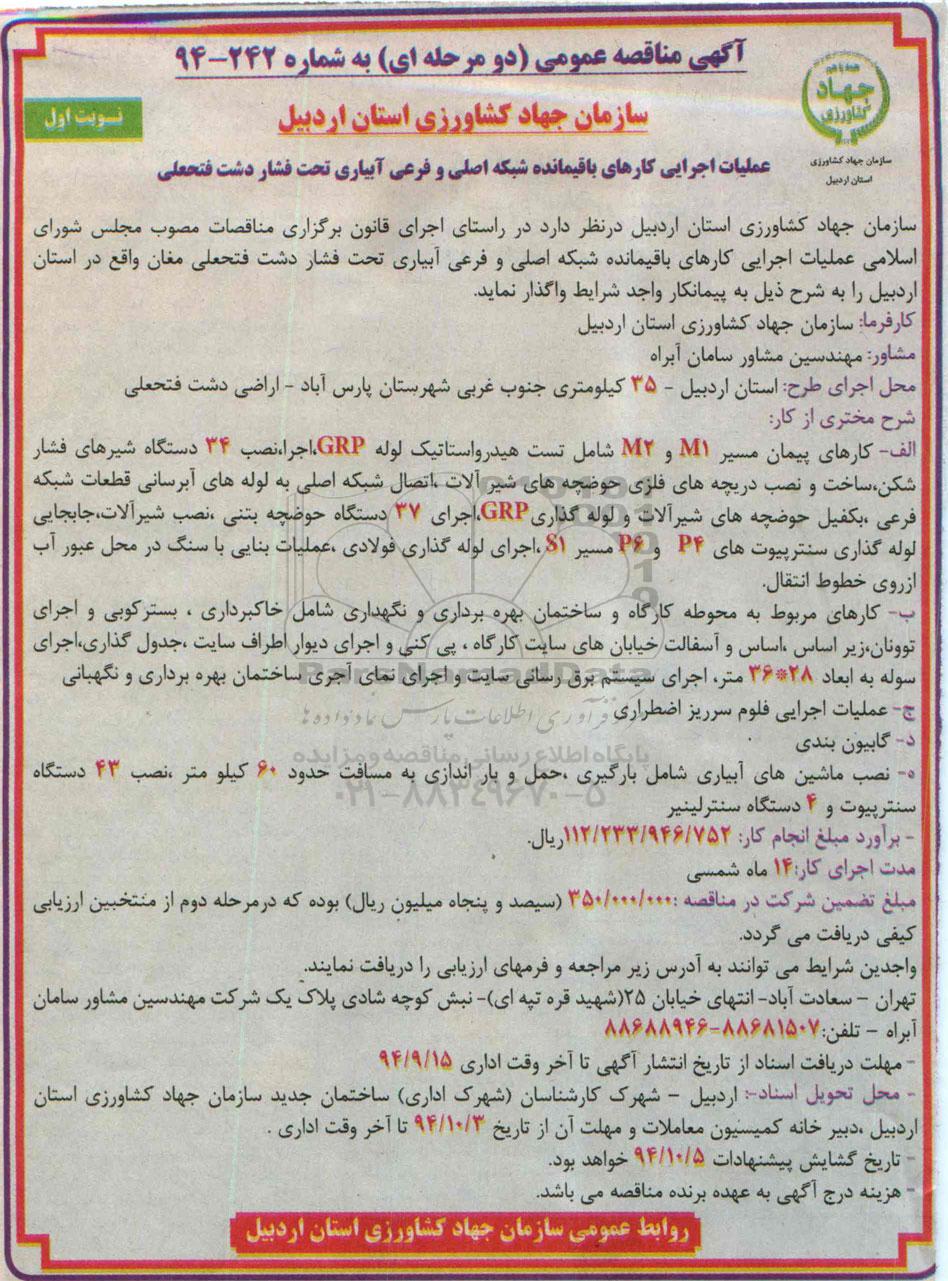 آگهی مناقصه عمومی (دو مرحله ای) به شماره ۲۴۲-۹۴
همه با هم
جهاد
کشاورزی
سازمان جهاد کشاورزی
استان اردبیل
سازمان جهاد کشاورزی استان اردبیل
نوبت اول
عملیات اجرایی کارهای باقیمانده شبکه اصلی و فرعی آبیاری تحت فشار دشت فتحعلی
سازمان جهاد کشاورزی استان اردبیل درنظر دارد در راستای اجرای قانون برگزاری مناقصات مصوب مجلس شورای
اسلامی عملیات اجرایی کارهای باقیمانده شبکه اصلی و فرعی آبیاری تحت فشار دشت فتحعلی مغان واقع در استان
اردبیل را به شرح ذیل به پیمانکار واجد شرایط واگذار نماید.
کارفرما: سازمان جهاد کشاورزی استان اردبیل
مشاور: مهندسین مشاور سامان آبراه
محل اجرای طرح: استان اردبیل - ۳۵ کیلومتری جنوب غربی شهرستان پارس آباد - اراضی دشت فتحعلی
شرح مختری از کار:
الف- کارهای پیمان مسیر M۱ و M۲ شامل تست هیدرواستاتیک لوله GRP،اجرا،نصب ۳۴ دستگاه شیرهای فشار
شکن،ساخت و نصب دریچه های فلزی حوضچه های شیر آلات ،اتصال شبکه اصلی به لوله های آبرسانی قطعات شبکه
فرعی ،بکفیل حوضچه های شیرآلات و لوله گذاری GRP،اجرای ۳۷ دستگاه حوضچه بتنی ،نصب شیرآلات،جابجایی
لوله گذاری سنترپیوت های P۴ و P۶ مسیر S۱ ،اجرای لوله گذاری فولادی ،عملیات بنایی با سنگ در محل عبور آب
ازروی خطوط انتقال.
ب- کارهای مربوط به محوطه کارگاه و ساختمان بهره برداری و نگهداری شامل خاکبرداری ، بسترکوبی و اجرای
توونان،زیر اساس ،اساس و آسفالت خیابان های سایت کارگاه ، پی کنی و اجرای دیوار اطراف سایت ،جدول گذاری،اجرای
سوله به ابعاد ۲۸*۳۶ متر، اجرای سیستم برق رسانی سایت و اجرای نمای آجری ساختمان بهره برداری و نگهبانی
ج- عملیات اجرایی فلوم سرریز اضطراری
د- گابیون بندی
ه- نصب ماشین های آبیاری شامل بارگیری ،حمل و بار اندازی به مسافت حدود ۶۰ کیلو متر ،نصب ۴۳ دستگاه
سنترپیوت و ۴ دستگاه سنترلینیر
- برآورد مبلغ انجام کار: ۱۱۲/۲۳۳/۹۴۶/۷۵۲ریال.
مدت اجرای کار:۱۴ ماه شمسی
مبلغ تضمین شرکت در مناقصه :۳۵۰/۰۰۰/۰۰۰ (سیصد و پنجاه میلیون ریال) بوده که درمرحله دوم از منتخبین ارزیابی
کیفی دریافت می گردد.
واجدین شرایط می توانند به آدرس زیر مراجعه و فرمهای ارزیابی را دریافت نمایند.
تهران - سعادت آباد- انتهای خیابان ۲۵(شهید قره تپه ای)- نبش کوچه شادی پلاک یک شرکت مهندسین مشاور سامان
آبراه - تلفن:۸۸۶۸۱۵۰۷-۸۸۶۸۸۹۴۶
- مهلت دریافت اسناد از تاریخ انتشار آگهی تا آخر وقت اداری ۹۴/۹/۱۵
- محل تحویل اسناد-: اردبیل - شهرک کارشناسان (شهرک اداری) ساختمان جدید سازمان جهاد کشاورزی استان
اردبیل ،دبیر خانه کمیسیون معاملات و مهلت آن از تاریخ ۹۴/۱۰/۳ تا آخر وقت اداری .
- تاریخ گشایش پیشنهادات ۹۴/۱۰/۵ خواهد بود.
- هزینه درج آگهی به عهده برنده مناقصه می باشد.
روابط عمومی سازمان جهاد کشاورزی استان اردبیل
ParsNamadData
پایگاه اطلاع رسانی مناقصه و مزایده
۰۲۱-۸۸۳۴۹۶۷۰-۵